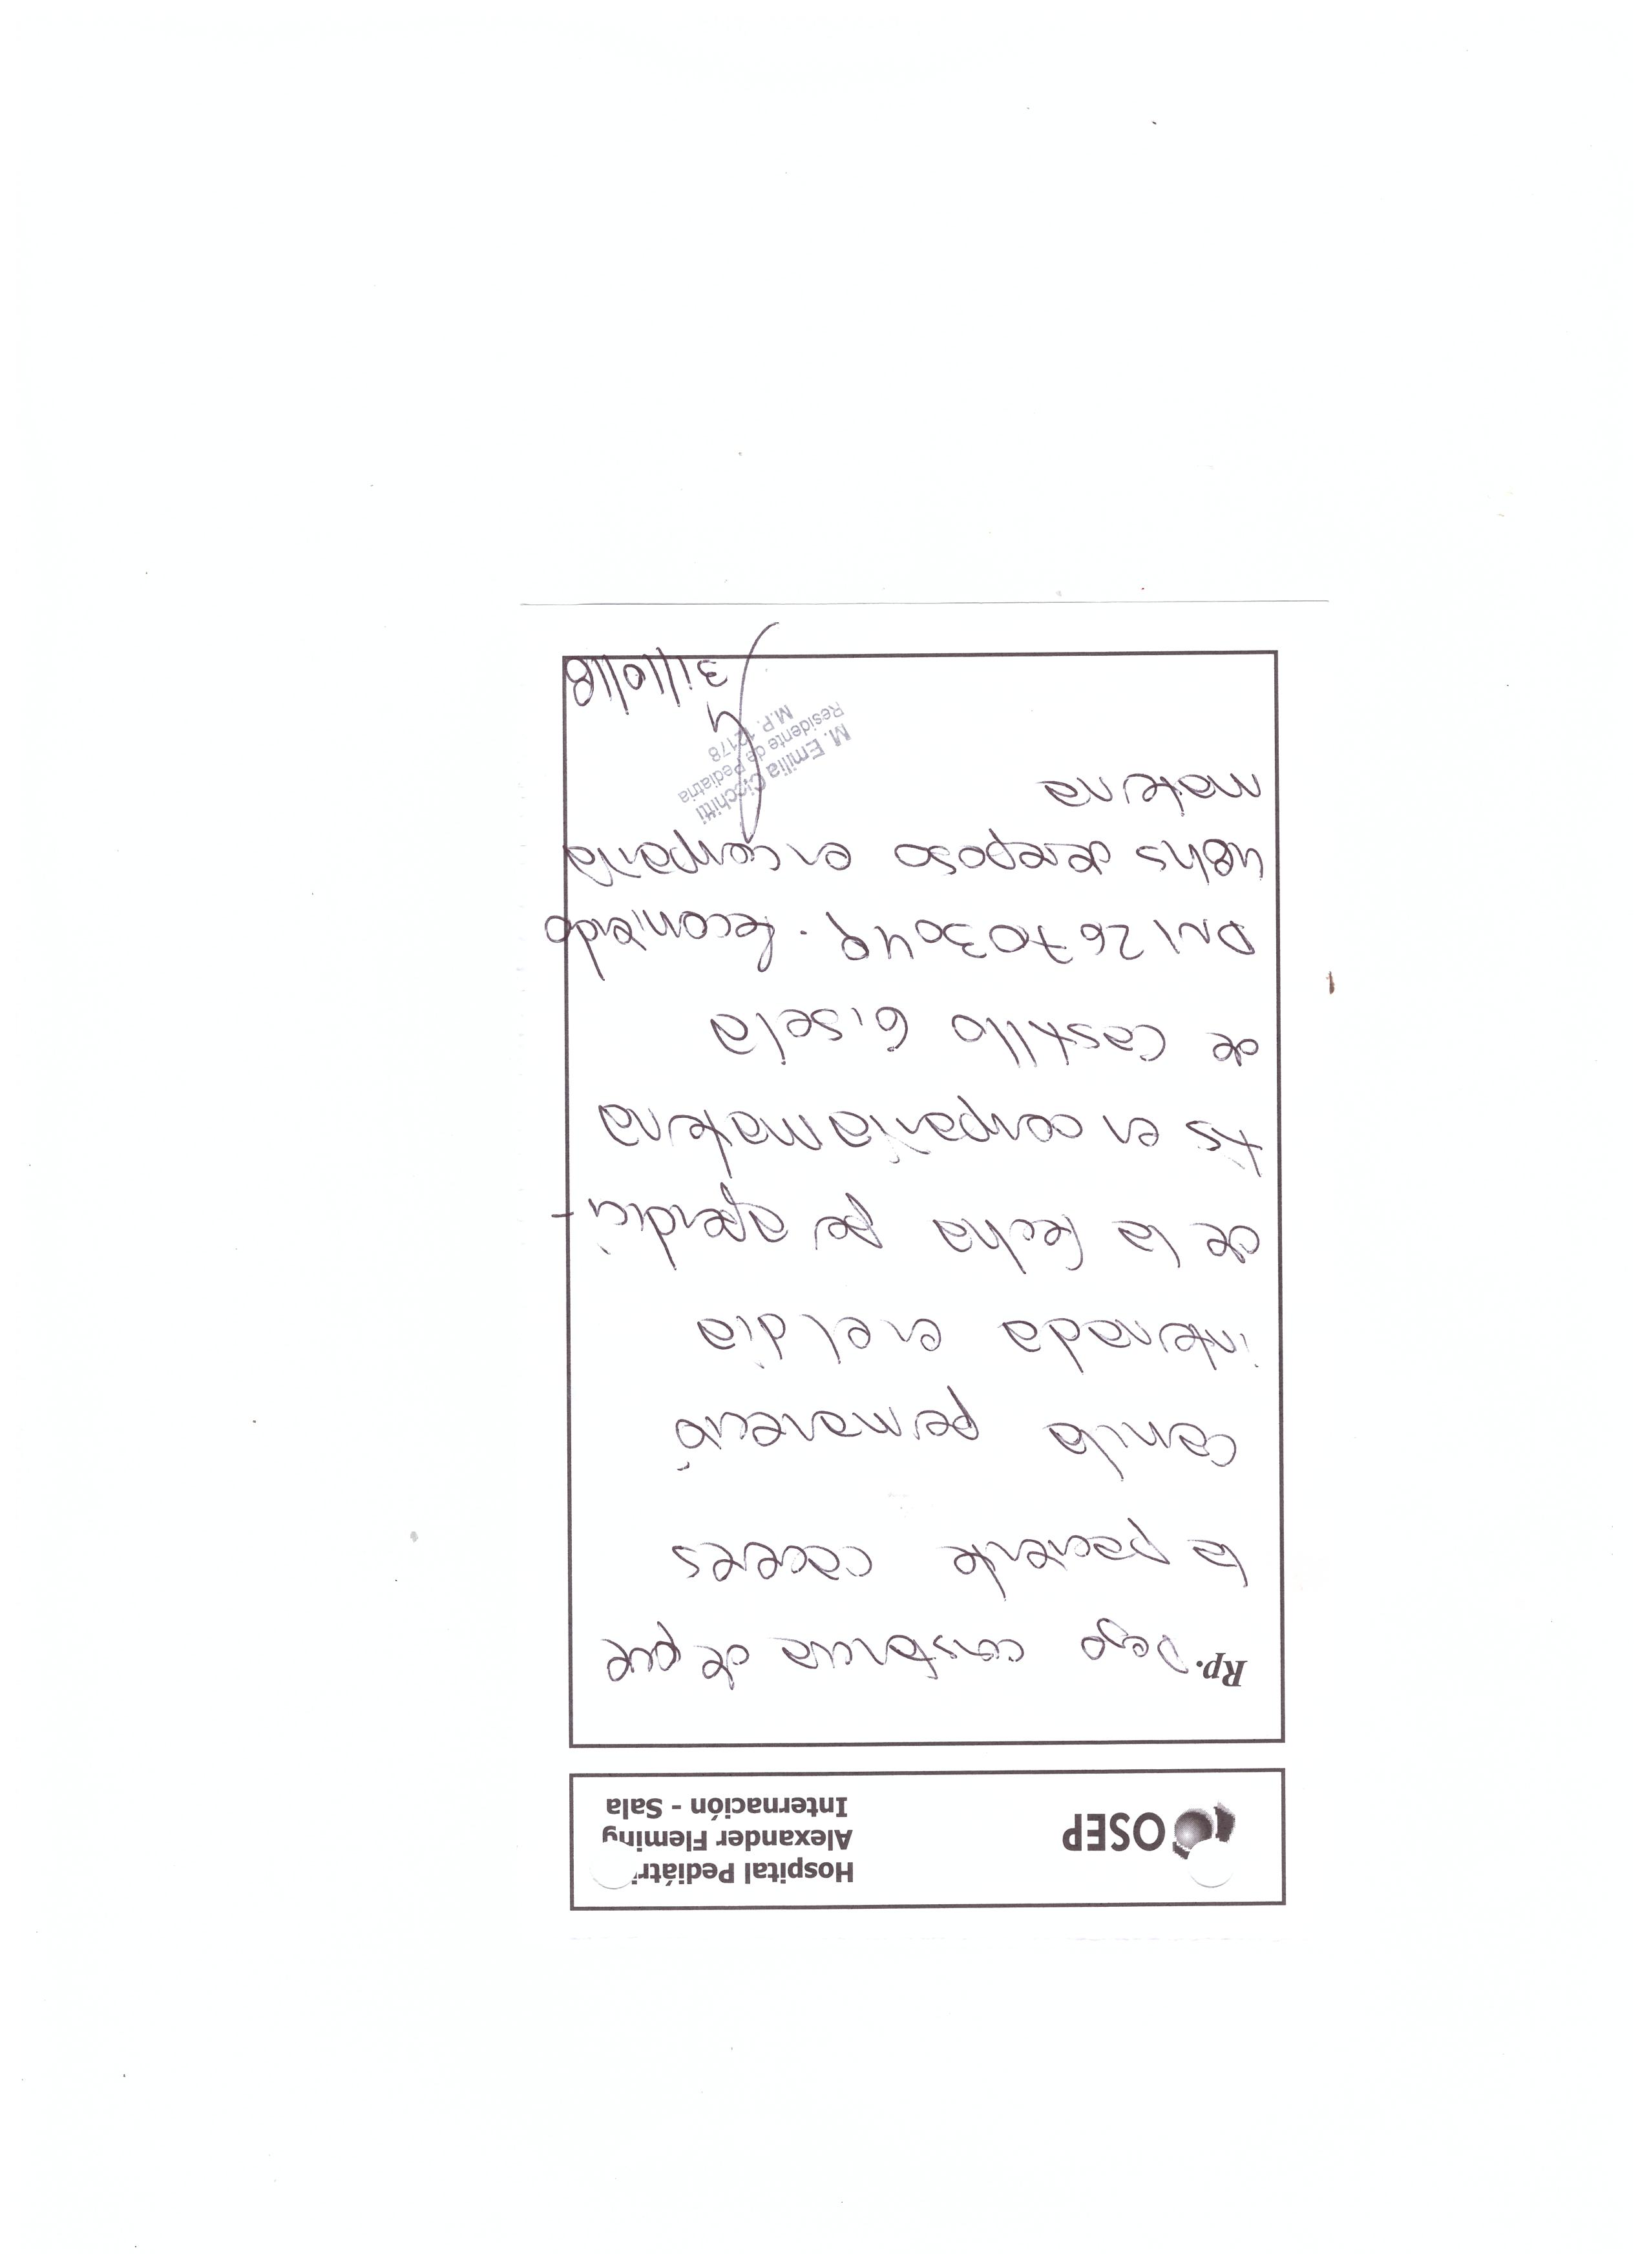 OSEP
Hospital Pediátri
Alexander Fleming
Internación - Sala
Rp. Dejo constancia de que
la paciente caceres
camila permaneció
internada en el dia
de la fecha por apendici-
tis en compañia materna
de castillo Gisela
DNI 26703049. Recomiendo
48hs de reposo en compañia
materna
M. Emilia Cicchitti
Residente de Pediatria
M.P. 12178
31/10/18